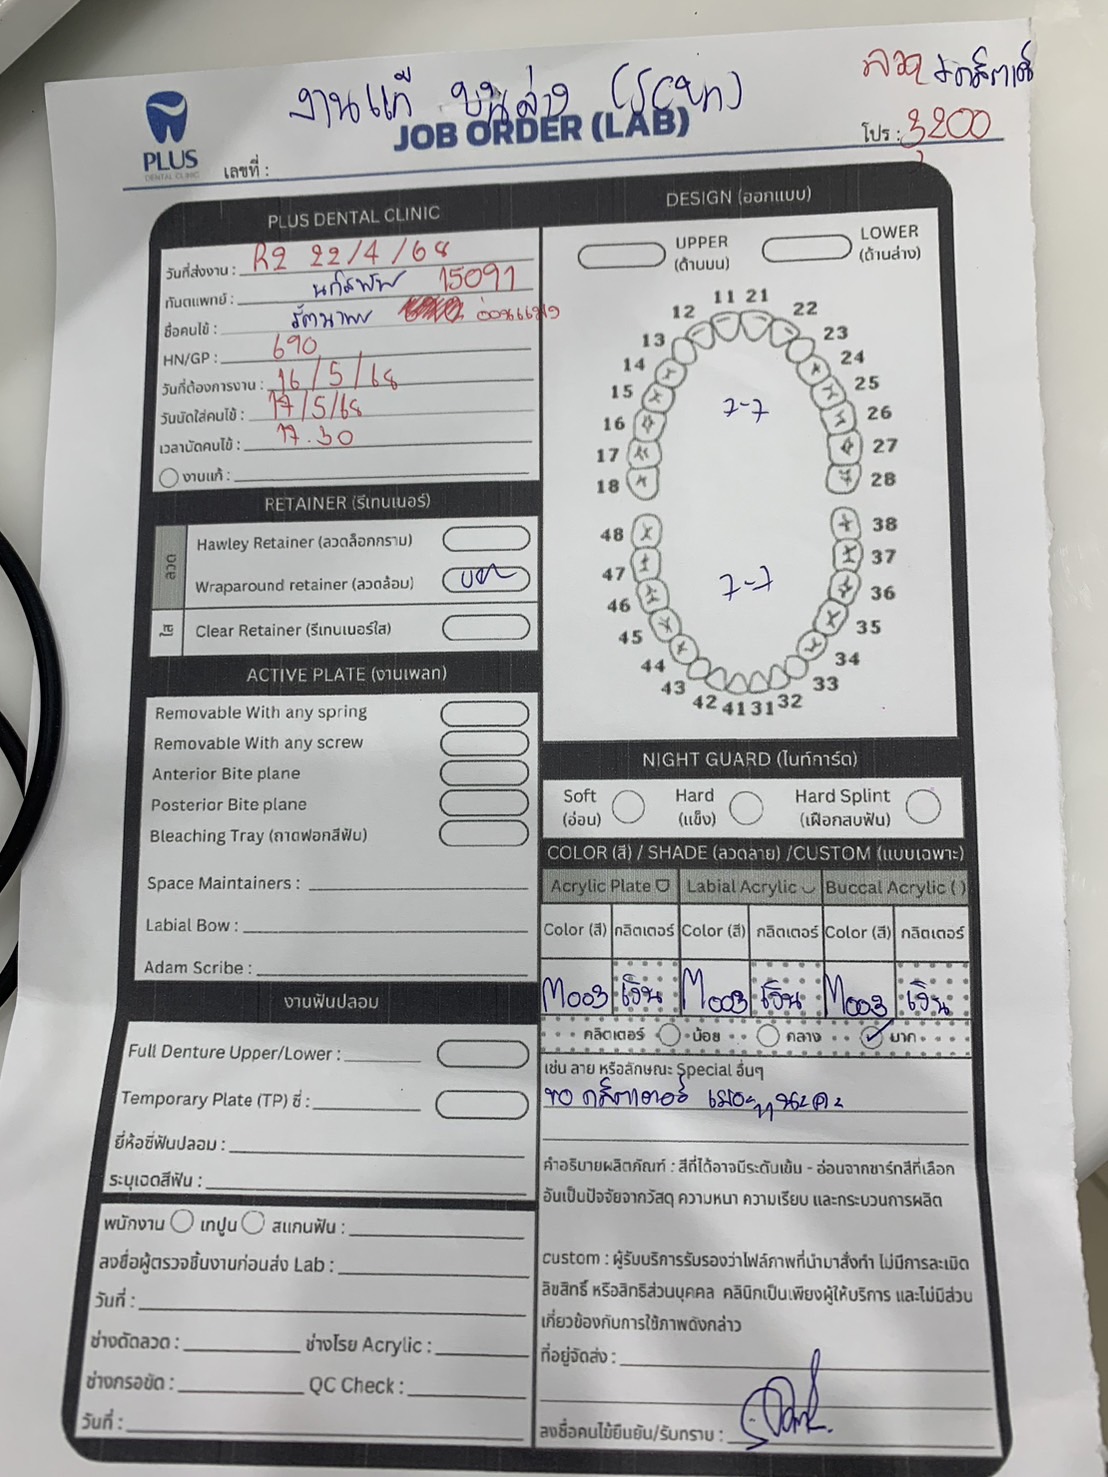 งานแก้ บนล่าง (Scan)
ลวด
PLUS
DENTAL CLINIC
JOB ORDER (LAB)
โปร : 3,200
เลขที่ :
PLUS DENTAL CLINIC
วันที่ส่งงาน : R2 22/4/68
ทันตแพทย์ : 15091
ชื่อคนไข้ :
HN/GP : 690
วันที่ต้องการงาน : 16/5/68
วันนัดใส่คนไข้ : 17/5/68
เวลานัดคนไข้ : 17.30
งานแก้ :
RETAINER (รีเทนเนอร์)
ลวด
Hawley Retainer (ลวดล็อกกราม)
Wraparound retainer (ลวดล้อม) บน
ใส
Clear Retainer (รีเทนเนอร์ใส)
ACTIVE PLATE (งานเพลท)
Removable With any spring
Removable With any screw
Anterior Bite plane
Posterior Bite plane
Bleaching Tray (ถาดฟอกสีฟัน)
Space Maintainers :
Labial Bow :
Adam Scribe :
งานฟันปลอม
Full Denture Upper/Lower :
Temporary Plate (TP) ซี่ :
ยี่ห้อซี่ฟันปลอม :
ระบุเฉดสีฟัน :
พนักงาน เทปูน สแกนฟัน :
ลงชื่อผู้ตรวจชิ้นงานก่อนส่ง Lab :
วันที่ :
ช่างดัดลวด : ช่างโรย Acrylic :
ช่างกรอขัด : QC Check :
วันที่ :
DESIGN (ออกแบบ)
UPPER (ด้านบน)
LOWER (ด้านล่าง)
11 21
12 22
13 23
14 24
15 25
16 26
17 27
18 28
7-7
48 38
47 37
46 36
45 35
44 34
43 33
42 41 31 32
7-7
NIGHT GUARD (ไนท์การ์ด)
Soft (อ่อน)
Hard (แข็ง)
Hard Splint (เฝือกสบฟัน)
COLOR (สี) / SHADE (ลวดลาย) /CUSTOM (แบบเฉพาะ)
Acrylic Plate Labial Acrylic Buccal Acrylic ( )
Color (สี) กลิตเตอร์ Color (สี) กลิตเตอร์ Color (สี) กลิตเตอร์
M003 เงิน M003 เงิน M003 เงิน
กลิตเตอร์ น้อย กลาง มาก
เช่น ลาย หรือลักษณะ Special อื่นๆ
ขอ กลิตเตอร์ เยอะๆ นะคะ
คำอธิบายผลิตภัณฑ์ : สีที่ได้อาจมีระดับเข้ม - อ่อนจากชาร์ทสีที่เลือก
อันเป็นปัจจัยจากวัสดุ ความหนา ความเรียบ และกระบวนการผลิต
custom : ผู้รับบริการรับรองว่าไฟล์ภาพที่นำมาสั่งทำ ไม่มีการละเมิด
ลิขสิทธิ์ หรือสิทธิส่วนบุคคล คลินิกเป็นเพียงผู้ให้บริการ และไม่มีส่วน
เกี่ยวข้องกับการใช้ภาพดังกล่าว
ที่อยู่จัดส่ง :
ลงชื่อคนไข้ยืนยัน/รับทราบ :